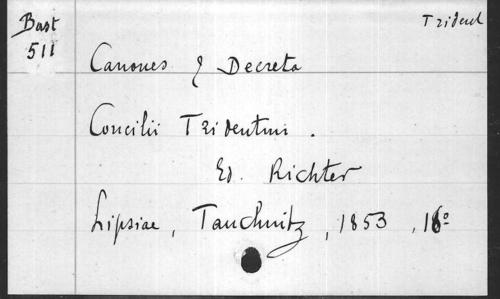 Bast Trident
511
Canones & Decreta
Concilii Tridentini .
Ed. Richter
Lipsiae, Tauchnitz, 1853, 16º